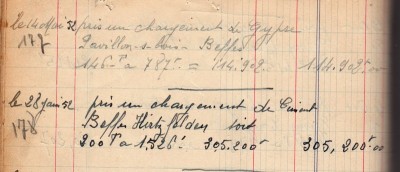 le 14 Mai 52 pris un chargement de Gypse
177 Pavillon-s-bois - Beffes
146T à 787F = 114.902. 114.902.00
le 28 juin 52 pris un chargement de Ciment
178 Beffes Hirtzfelden soit
200T à 1526F 305.200F 305,200F00